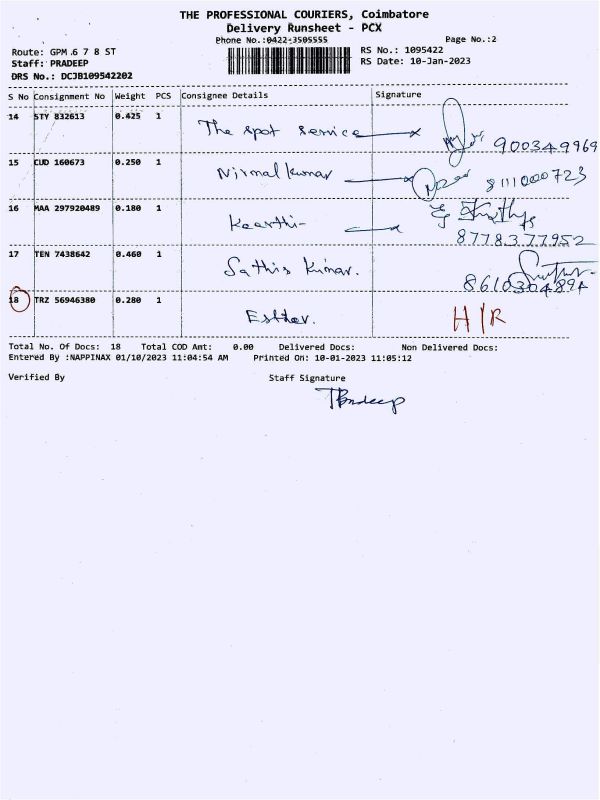 THE PROFESSIONAL COURIERS, Coimbatore
Delivery Runsheet - PCX
Phone No.:0422-3505555
Page No.:2
Route: GPM 6 7 8 ST
Staff: PRADEEP
DRS No.: DCJB109542202
RS No.: 1095422
RS Date: 10-Jan-2023
S No Consignment No Weight PCS Consignee Details Signature
14 STY 832613 0.425 1 The spot service 900349969
15 CUD 160673 0.250 1 Nirmal kumar 8111000723
16 MAA 297920489 0.180 1 Keerthi 8778377952
17 TEN 7438642 0.460 1 Sathis kumar.
18 TRZ 56946380 0.280 1 Esther. H/R
Total No. Of Docs: 18 Total COD Amt: 0.00 Delivered Docs: Non Delivered Docs:
Entered By :NAPPINAX 01/10/2023 11:04:54 AM Printed On: 10-01-2023 11:05:12
Verified By Staff Signature